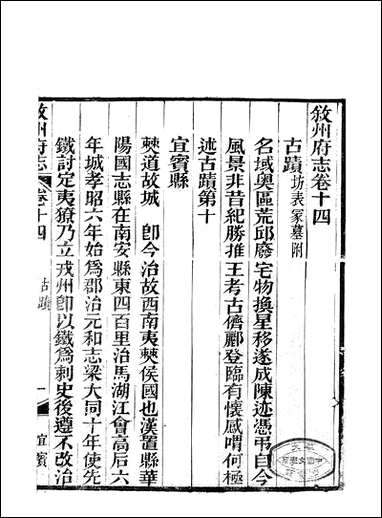 敘州府志卷十四
古蹟坊表冢墓附
名域奥區荒邱廢宅物換星移遂成陳迹憑弔自今
風景非昔紀勝推王考古儕酈登臨有懷感喟何極
述古蹟第十
宜賓縣
僰道故城 即今治故西南夷僰侯國也漢置縣華
陽國志縣在南安縣東四百里治馬湖江會高后六
年城孝昭六年始爲郡治元和志梁大同十年使先
鐵討定夷獠乃立戎州卽以鐵爲刺史後遵不改治
敘州府志
卷十四
古蹟
一
宜賓